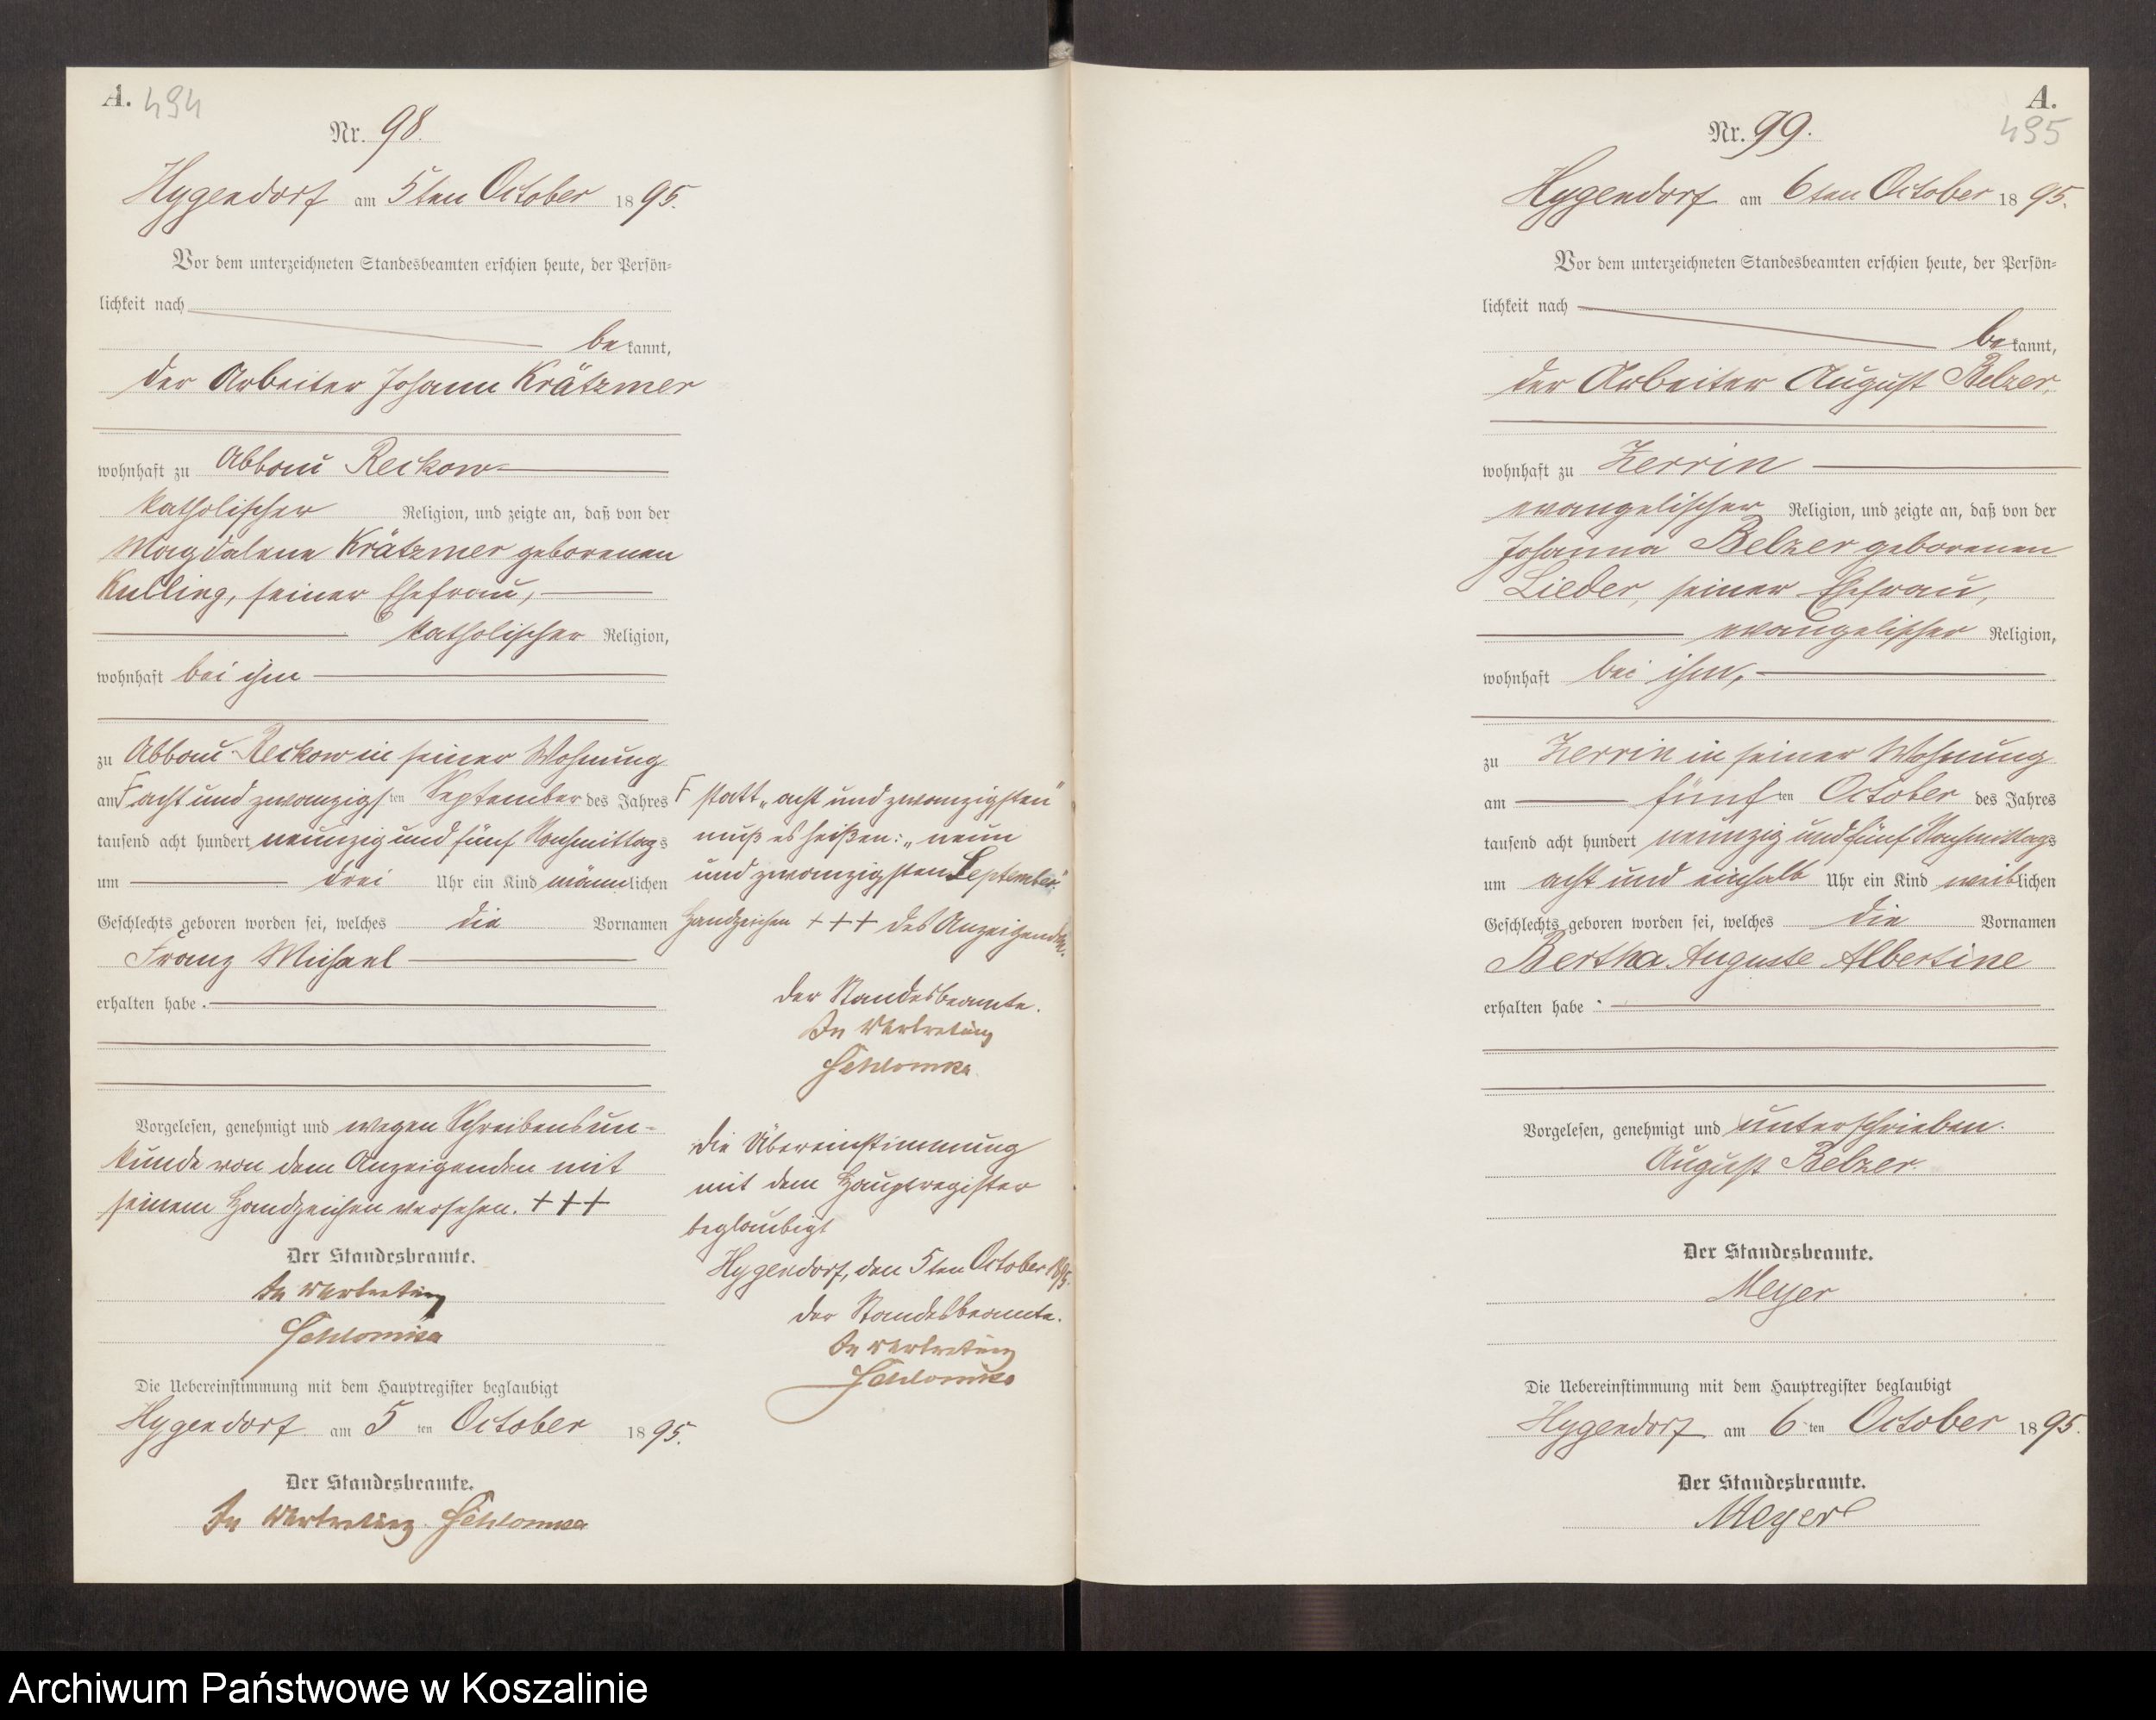 A. 494
Nr. 98.
Hygendorf am 5ten October 1895.
Vor dem unterzeichneten Standesbeamten erschien heute, der Persön-
lichkeit nach
bekannt,
der Arbeiter Johann Krätzmer
wohnhaft zu Abbau Reckow
katholischer Religion, und zeigte an, daß von der
Magdalene Krätzmer geborenen
Kulling, seiner Ehefrau,
katholischer Religion,
wohnhaft bei ihm
zu Abbau Reckow in seiner Wohnung
am F acht und zwanzigsten September des Jahres
tausend acht hundert neunzig und fünf Nachmittags
um drei Uhr ein Kind männlichen
Geschlechts geboren worden sei, welches die Vornamen
Franz Michael
erhalten habe.
Vorgelesen, genehmigt und wegen Schreibensun-
kunde von dem Anzeigenden mit
seinem Handzeichen versehen. +++
Der Standesbeamte.
In Vertretung
Die Uebereinstimmung mit dem Hauptregister beglaubigt
Hygendorf am 5ten October 1895.
Der Standesbeamte.
In Vertretung.
F statt „acht und zwanzigsten"
muß es heißen: „neun
und zwanzigsten September."
Handzeichen +++ des Anzeigenden.
Der Standesbeamte.
In Vertretung
Die Übereinstimmung
mit dem Hauptregister
beglaubigt
Hygendorf, den 5ten October 1895.
Der Standesbeamte.
In Vertretung
A.
495
Nr. 99.
Hygendorf am 6ten October 1895.
Vor dem unterzeichneten Standesbeamten erschien heute, der Persön-
lichkeit nach
bekannt,
der Arbeiter August Belzer,
wohnhaft zu Zerrin
evangelischer Religion, und zeigte an, daß von der
Johanna Belzer geborenen
Lieder, seiner Ehefrau,
evangelischer Religion,
wohnhaft bei ihm,
zu Zerrin in seiner Wohnung
am fünften October des Jahres
tausend acht hundert neunzig und fünf Nachmittags
um acht und einhalb Uhr ein Kind weiblichen
Geschlechts geboren worden sei, welches die Vornamen
Bertha Auguste Albertine
erhalten habe.
Vorgelesen, genehmigt und unterschrieben.
August Belzer.
Der Standesbeamte.
Meyer
Die Uebereinstimmung mit dem Hauptregister beglaubigt
Hygendorf am 6ten October 1895.
Der Standesbeamte.
Meyer
Archiwum Państwowe w Koszalinie